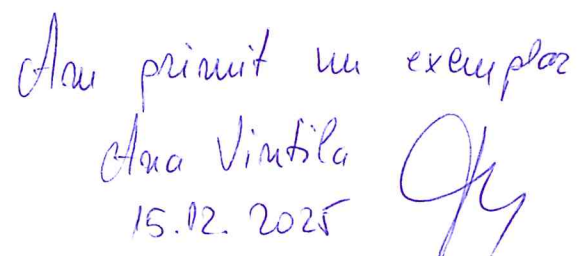 Am primit un exemplar
Ana Vintila
15.12.2025